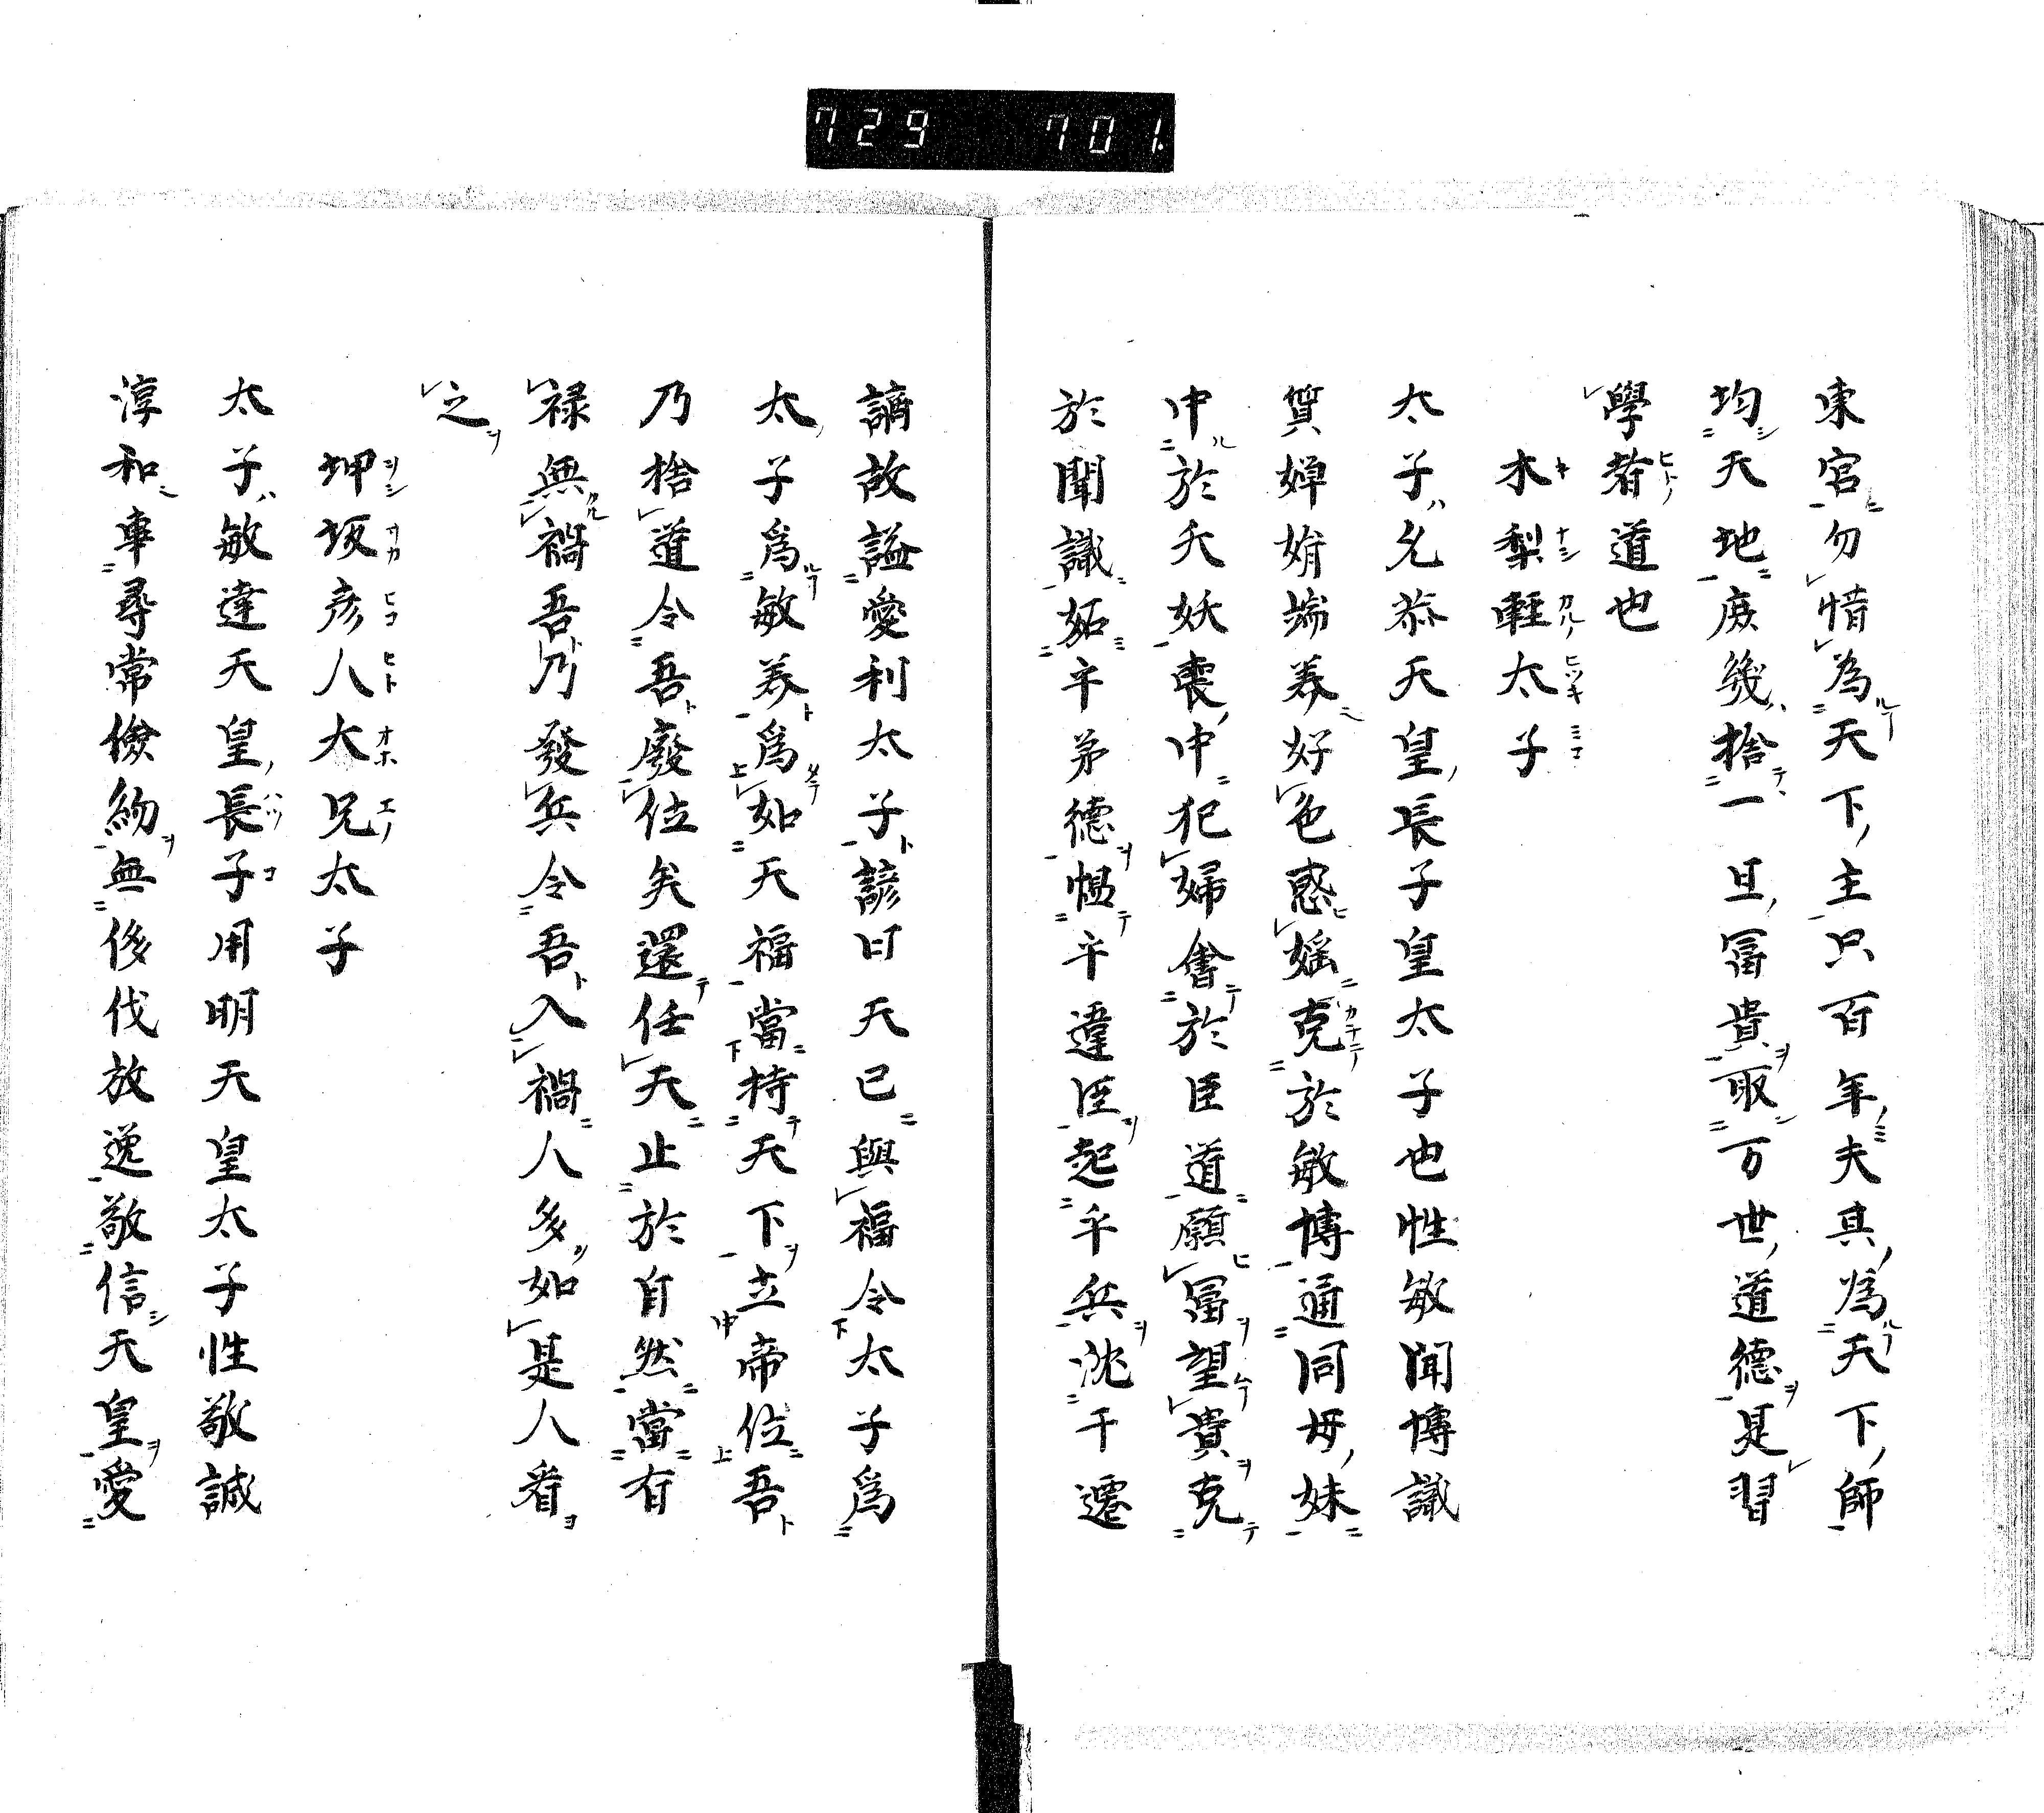 729 701.
東宮勿惜為天下主只百年夫其為天下師
均天地庶幾捨一旦冨貴取万世道德是習
學者道也
木梨輕太子
太子允恭天皇長子皇太子也性敏聞博識
質嬋娟端美好色惑婬克於敏博通同母妹
中於夭妖喪中犯婦會於臣道願冨望貴克
於聞識妬乎弟德慍乎違臣起乎兵沈于遷
謫故謚愛利太子諺曰天已與福令太子爲
太子爲敏美爲如天福當持天下立帝位吾
乃捨道令吾廢位矣還任天止於自然當有
禄無禍吾乃發兵令吾入禍人多如是人看
之
坤坂彦人大兄太子
太子敏達天皇長子用明天皇太子性敬誠
淳和車尋常儉約無侈伐放逸敬信天皇愛